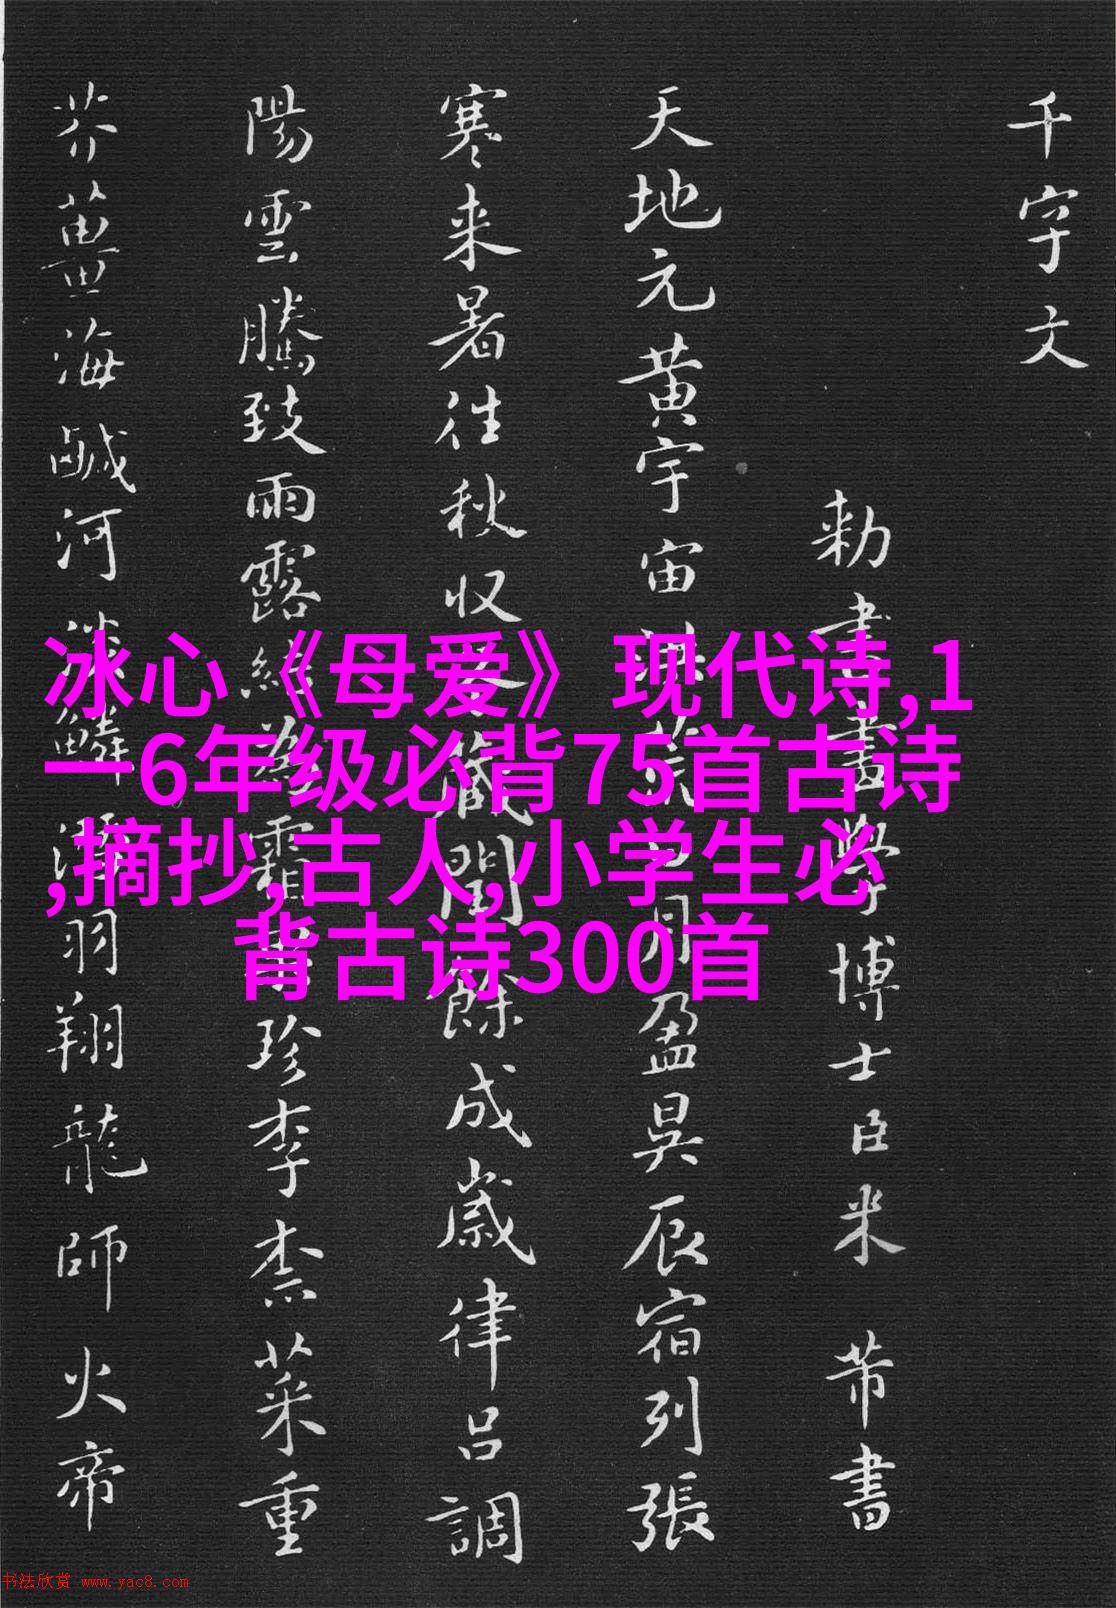 千字文
勅書畫學博士臣米芾書
天地元黄宇宙洪荒日月盈昃辰宿列張
寒来暑往秋収冬蔵閏餘成歲律呂調
陽雲騰致雨露結為霜珍李柰菜重
芥薑海鹹河淡鱗潛羽翔龍師火帝
冰心《母爱》现代诗,1
一6年级必背75首古诗
,摘抄,古人,小学生必
背古诗300首
书法欣赏 www.yac8.com